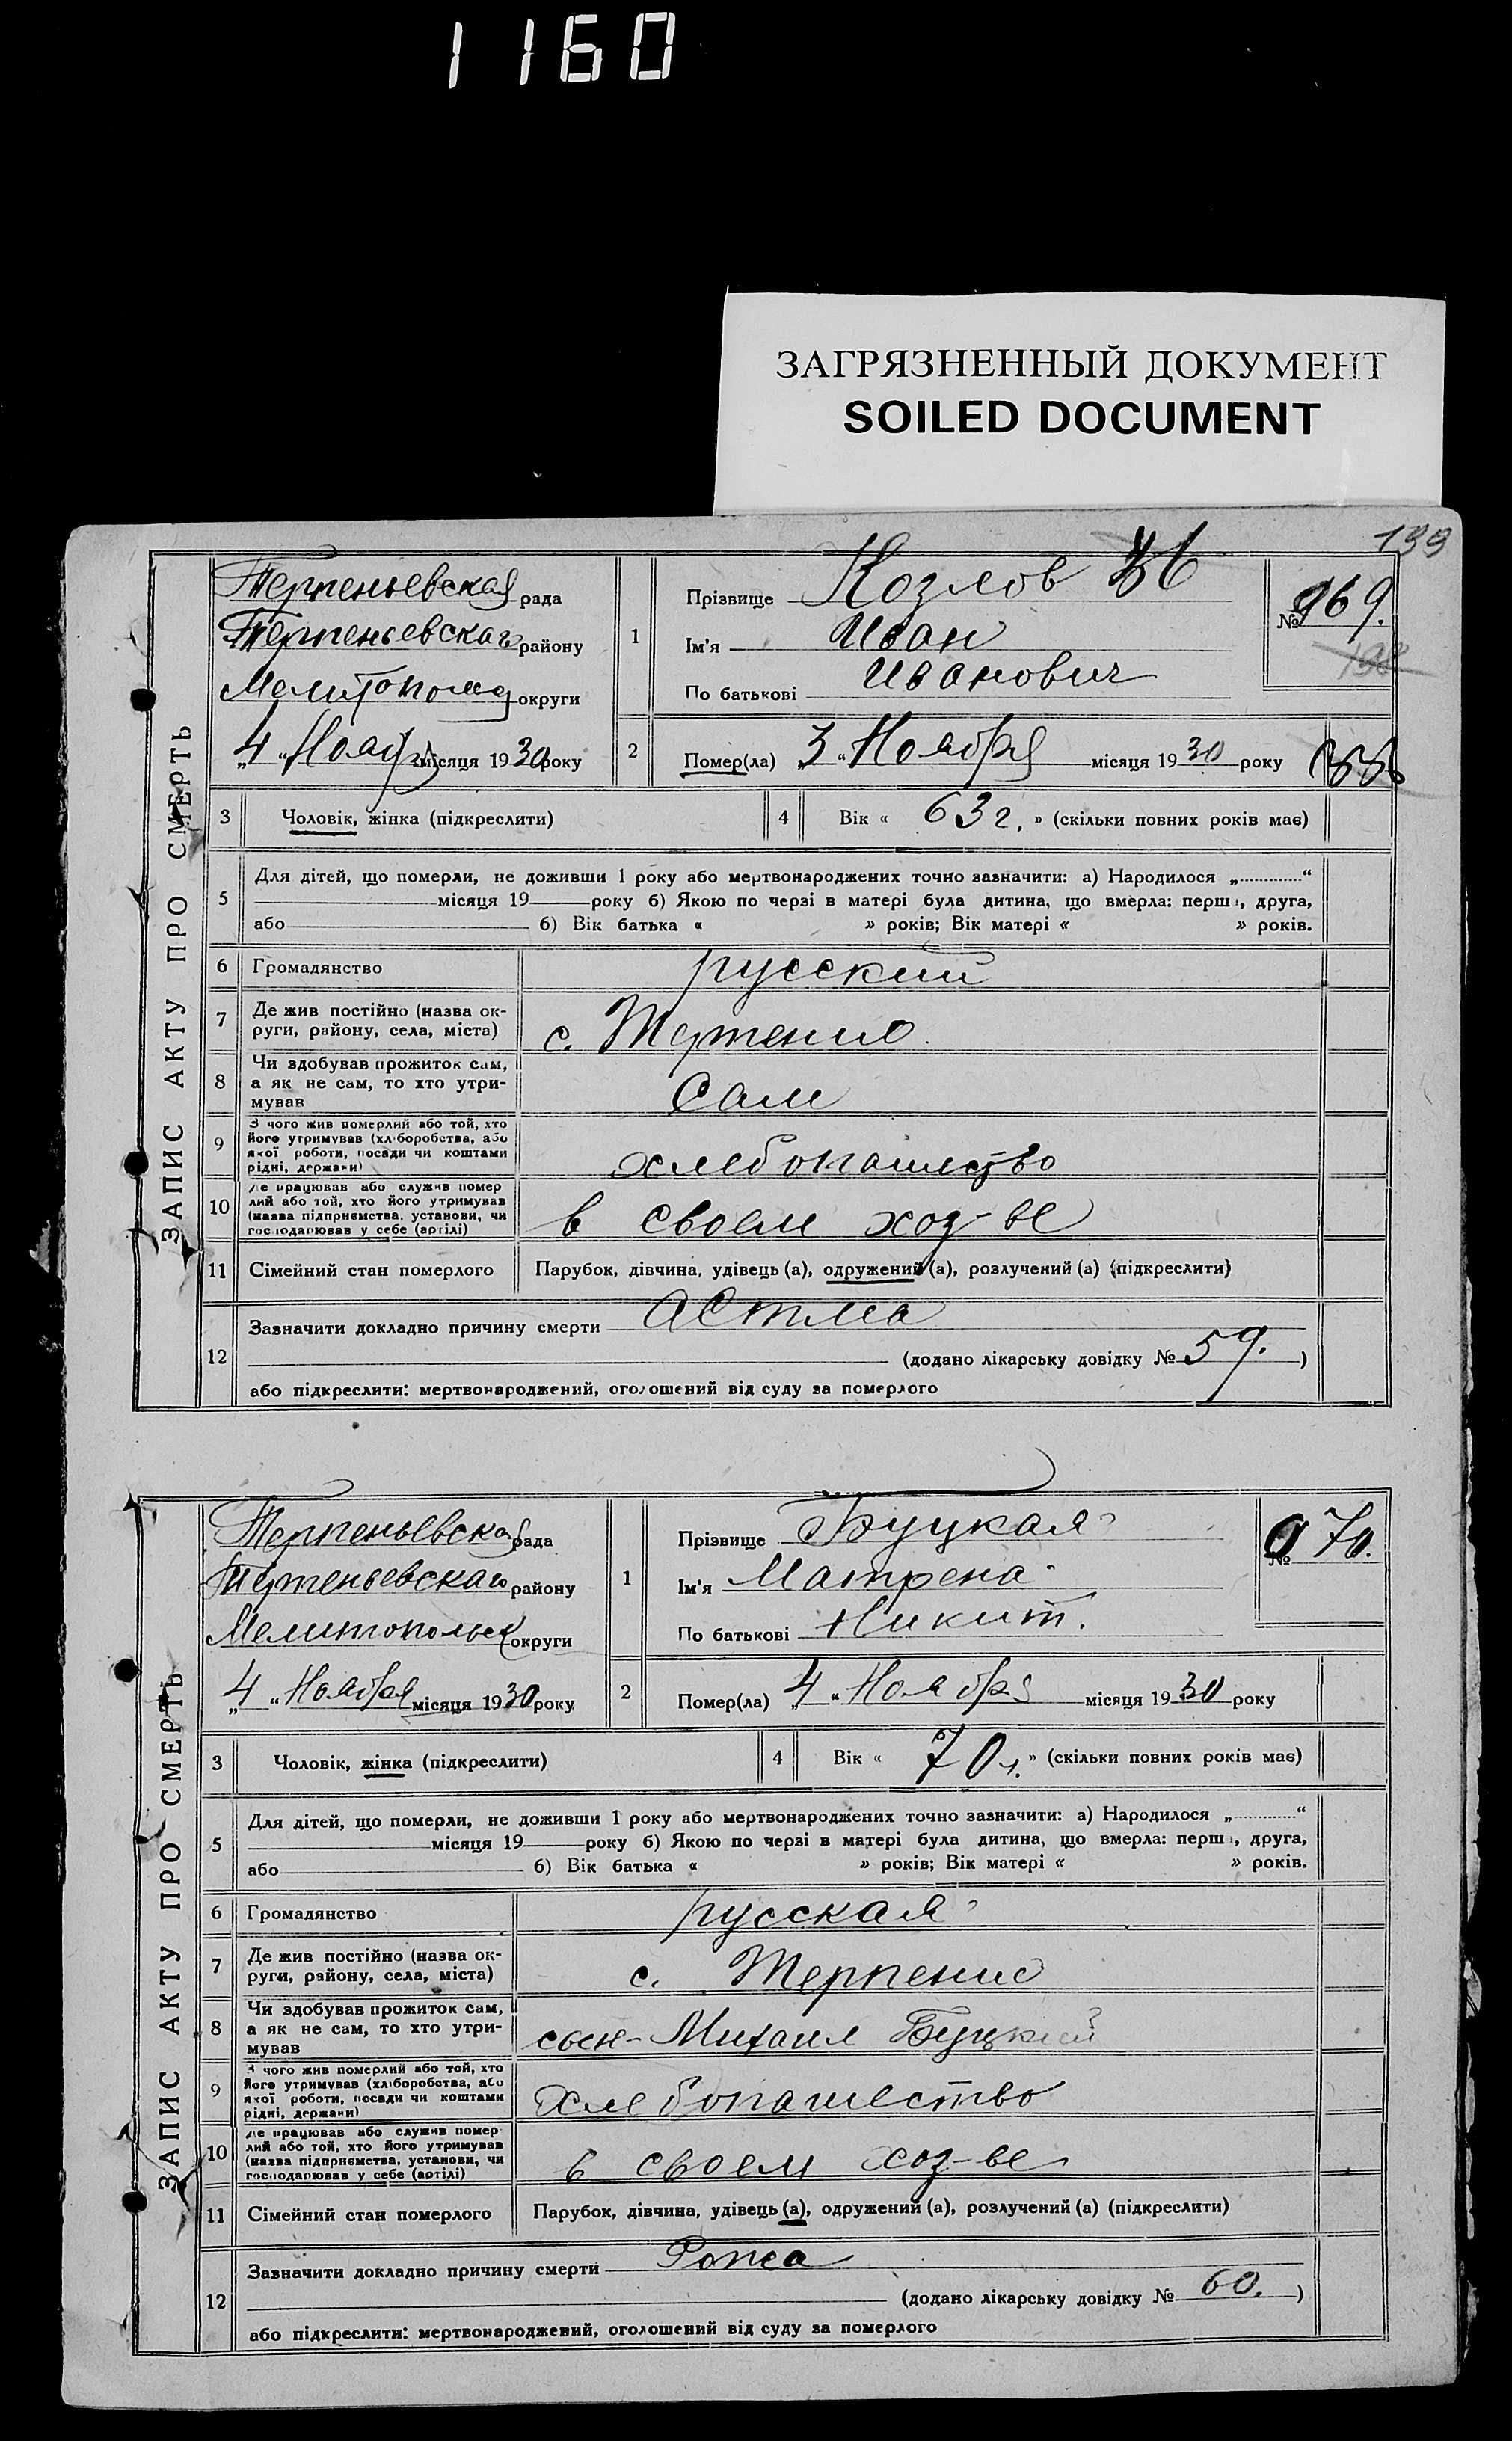 1160
ЗАГРЯЗНЕННЫЙ ДОКУМЕНТ
SOILED DOCUMENT
139
ЗАПИС АКТУ ПРО СМЕРТЬ
Терпеньевская рада
Терпеньевскаго району
округи
„4“ Ноября місяця 1930 року
1
Прізвище Козлов
Ім'я Иван
По батькові Иванович
№ 969.
2
Помер(ла) „3“ Ноября місяця 1930 року
3 Чоловік, жінка (підкреслити)
4 Вік « 63 г. » (скільки повних років має)
5
Для дітей, що померли, не доживши 1 року або мертвонароджених точно зазначити: а) Народилося „............“
місяця 19 року б) Якою по черзі в матері була дитина, що вмерла: перша, друга,
або б) Вік батька « » років; Вік матері « » років.
6 Громадянство русский
7 Де жив постійно (назва ок-
руги, району, села, міста) с. Терпение
8 Чи здобував прожиток сам,
а як не сам, то хто утри-
мував Сам
9 З чого жив померлий або той, хто
його утримував (хліборобства, або
якої роботи, посади чи коштами
рідні, держави) хлебопашество
10 Де працював або служив помер
лий або той, хто його утримував
(назва підприємства, установи, чи
господарював у себе (артілі) в своем хоз-ве
11 Сімейний стан померлого Парубок, дівчина, удівець (а), одружений (а), розлучений (а) (підкреслити)
12
Зазначити докладно причину смерти астма
(додано лікарську довідку № 59. )
або підкреслити: мертвонароджений, оголошений від суду за померлого
ЗАПИС АКТУ ПРО СМЕРТЬ
Терпеньевская рада
Терпеньевскаго району
Мелитопольск округи
„4“ Ноября місяця 1930 року
1
Прізвище Буцкая
Ім'я Матрена
По батькові Никит.
№ 970.
2
Помер(ла) „4“ Ноября місяця 1930 року
3 Чоловік, жінка (підкреслити)
4 Вік « 70 л. » (скільки повних років має)
5
Для дітей, що померли, не доживши 1 року або мертвонароджених точно зазначити: а) Народилося „............“
місяця 19 року б) Якою по черзі в матері була дитина, що вмерла: перша, друга,
або б) Вік батька « » років; Вік матері « » років.
6 Громадянство русская
7 Де жив постійно (назва ок-
руги, району, села, міста) с. Терпение
8 Чи здобував прожиток сам,
а як не сам, то хто утри-
мував сын - Михаил Буцкий
9 З чого жив померлий або той, хто
його утримував (хліборобства, або
якої роботи, посади чи коштами
рідні, держави) хлебопашество
10 Де працював або служив помер
лий або той, хто його утримував
(назва підприємства, установи, чи
господарював у себе (артілі) в своем хоз-ве
11 Сімейний стан померлого Парубок, дівчина, удівець (а), одружений (а), розлучений (а) (підкреслити)
12
Зазначити докладно причину смерти Рожа
(додано лікарську довідку № 60. )
або підкреслити: мертвонароджений, оголошений від суду за померлого